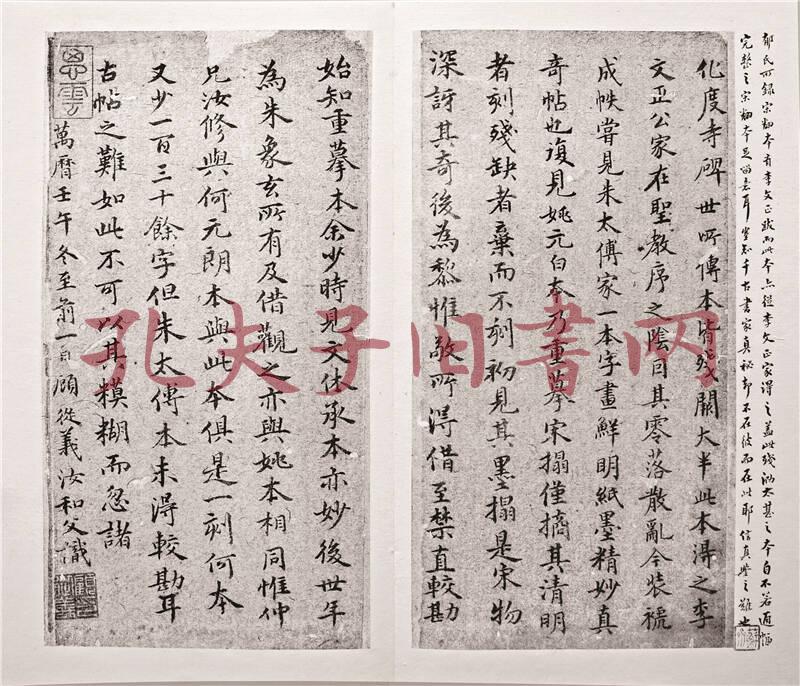 郁氏所錄宋翻本有李文正跋而此本亦從李文正家得之蓋此殘泐太甚之本自不若通幅
完整之宋翻本足留意耳豈知千古書家真秘却不在彼而在此耶信真鑒之難也
化度寺碑世所傳本皆殘闕大半此本得之李
文正公家在聖教序之陰因其零落散亂今裝褫
成帙嘗見朱太傅家一本字畫鮮明紙墨精妙真
奇帖也復見姚元白本乃重摹宋搨僅摘其清明
者刻殘缺者棄而不刻初見其墨搨是宋物
深訝其奇後為黎惟敬所得借至禁直較勘
始知重摹本余少時見文休承本亦妙後世年
為朱象玄所有及借觀之亦與姚本相同惟仲
兄汝修與何元朗本與此本俱是一刻何本
又少一百三十餘字但朱太傅本未得較勘耳
古帖之難如此不可以其糢糊而忽諸
萬曆壬午冬至前一日顧從義汝和父識
孔夫子旧书网